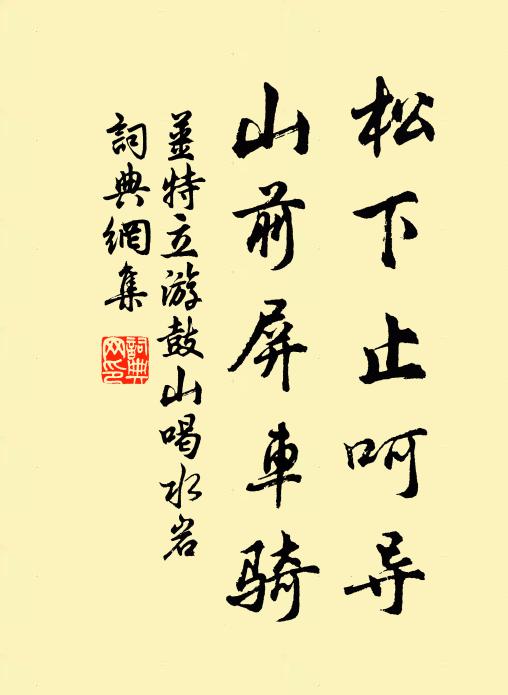 松下止呵导
山前屏車騎
姜特立游鼓山喝水岩
詞典網集
詞典
网印